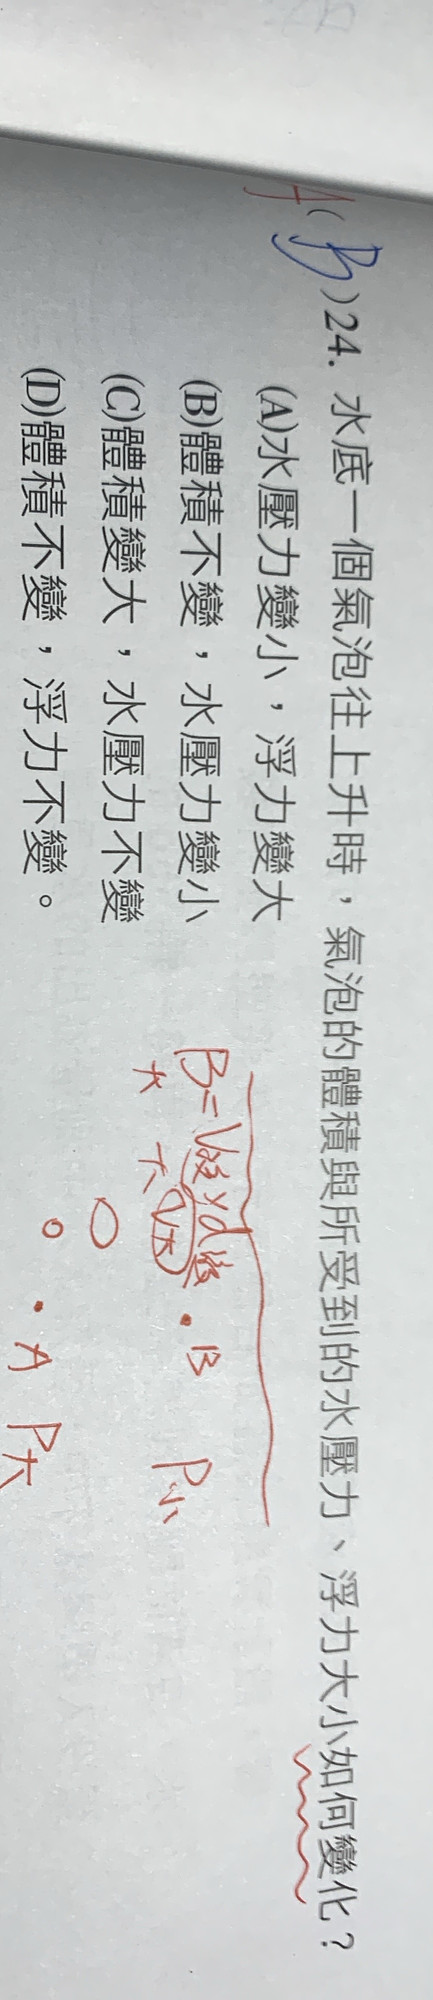 A(B)24. 水底一個氣泡往上升時，氣泡的體積與所受到的水壓力、浮力大小如何變化？
(A)水壓力變小，浮力變大
(B)體積不變，水壓力變小
(C)體積變大，水壓力不變
(D)體積不變，浮力不變。
B=V
大
大
B
P小
A
P大